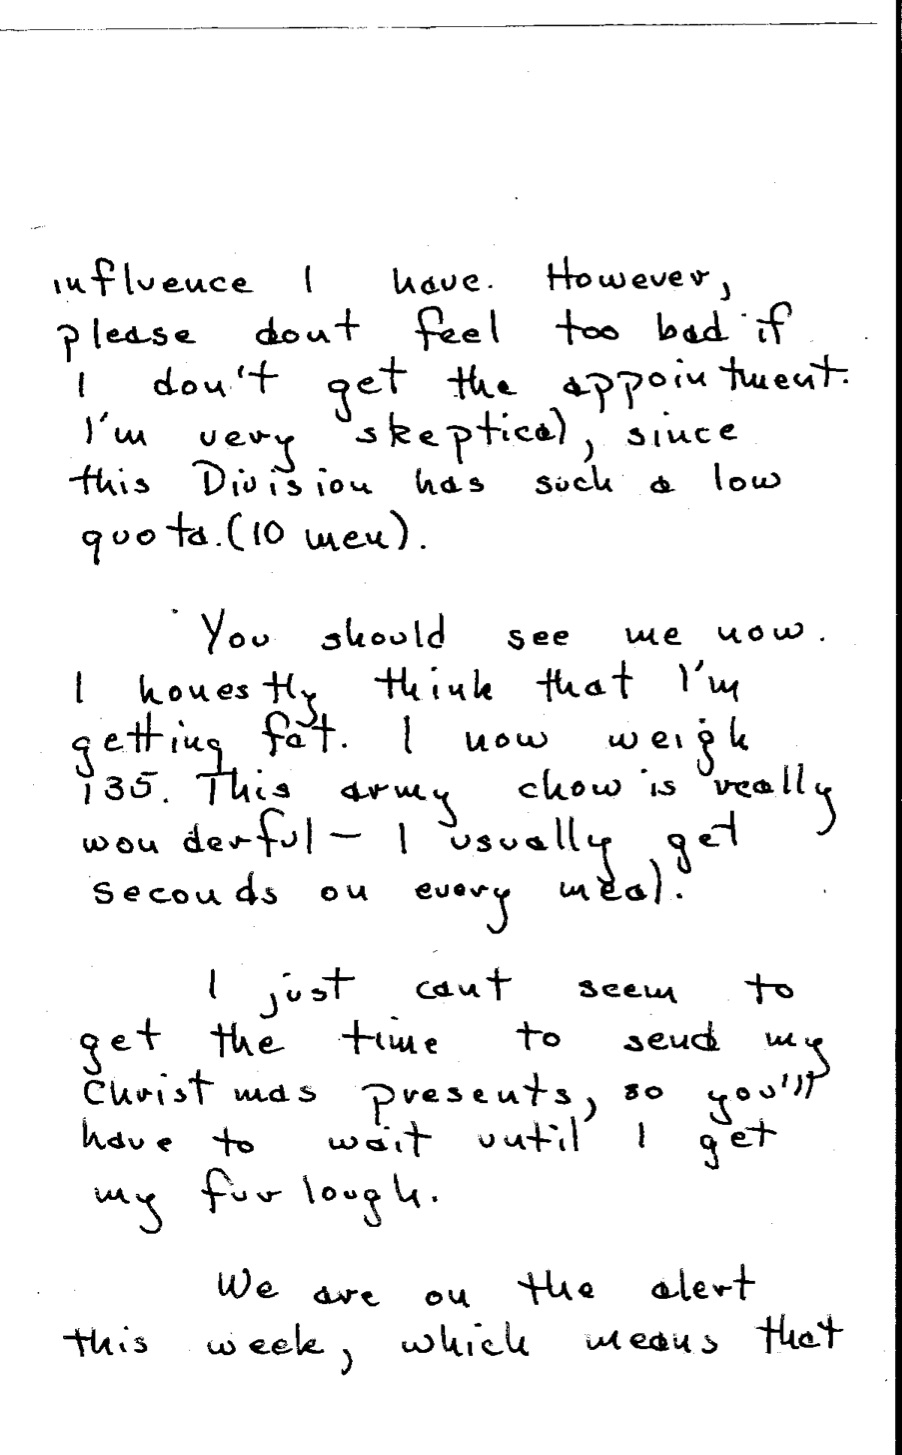 influence I have. However,
please dont feel too bad if
I don't get the appointment.
I'm very skeptical, since
this Division has such a low
quota.(10 men).
You should see me now.
I honestly think that I'm
getting fat. I now weigh
135. This army chow is really
wonderful – I usually get
seconds on every meal.
I just cant seem to
get the time to send my
Christmas presents, so you'll
have to wait until I get
my furlough.
We are on the alert
this week, which means that